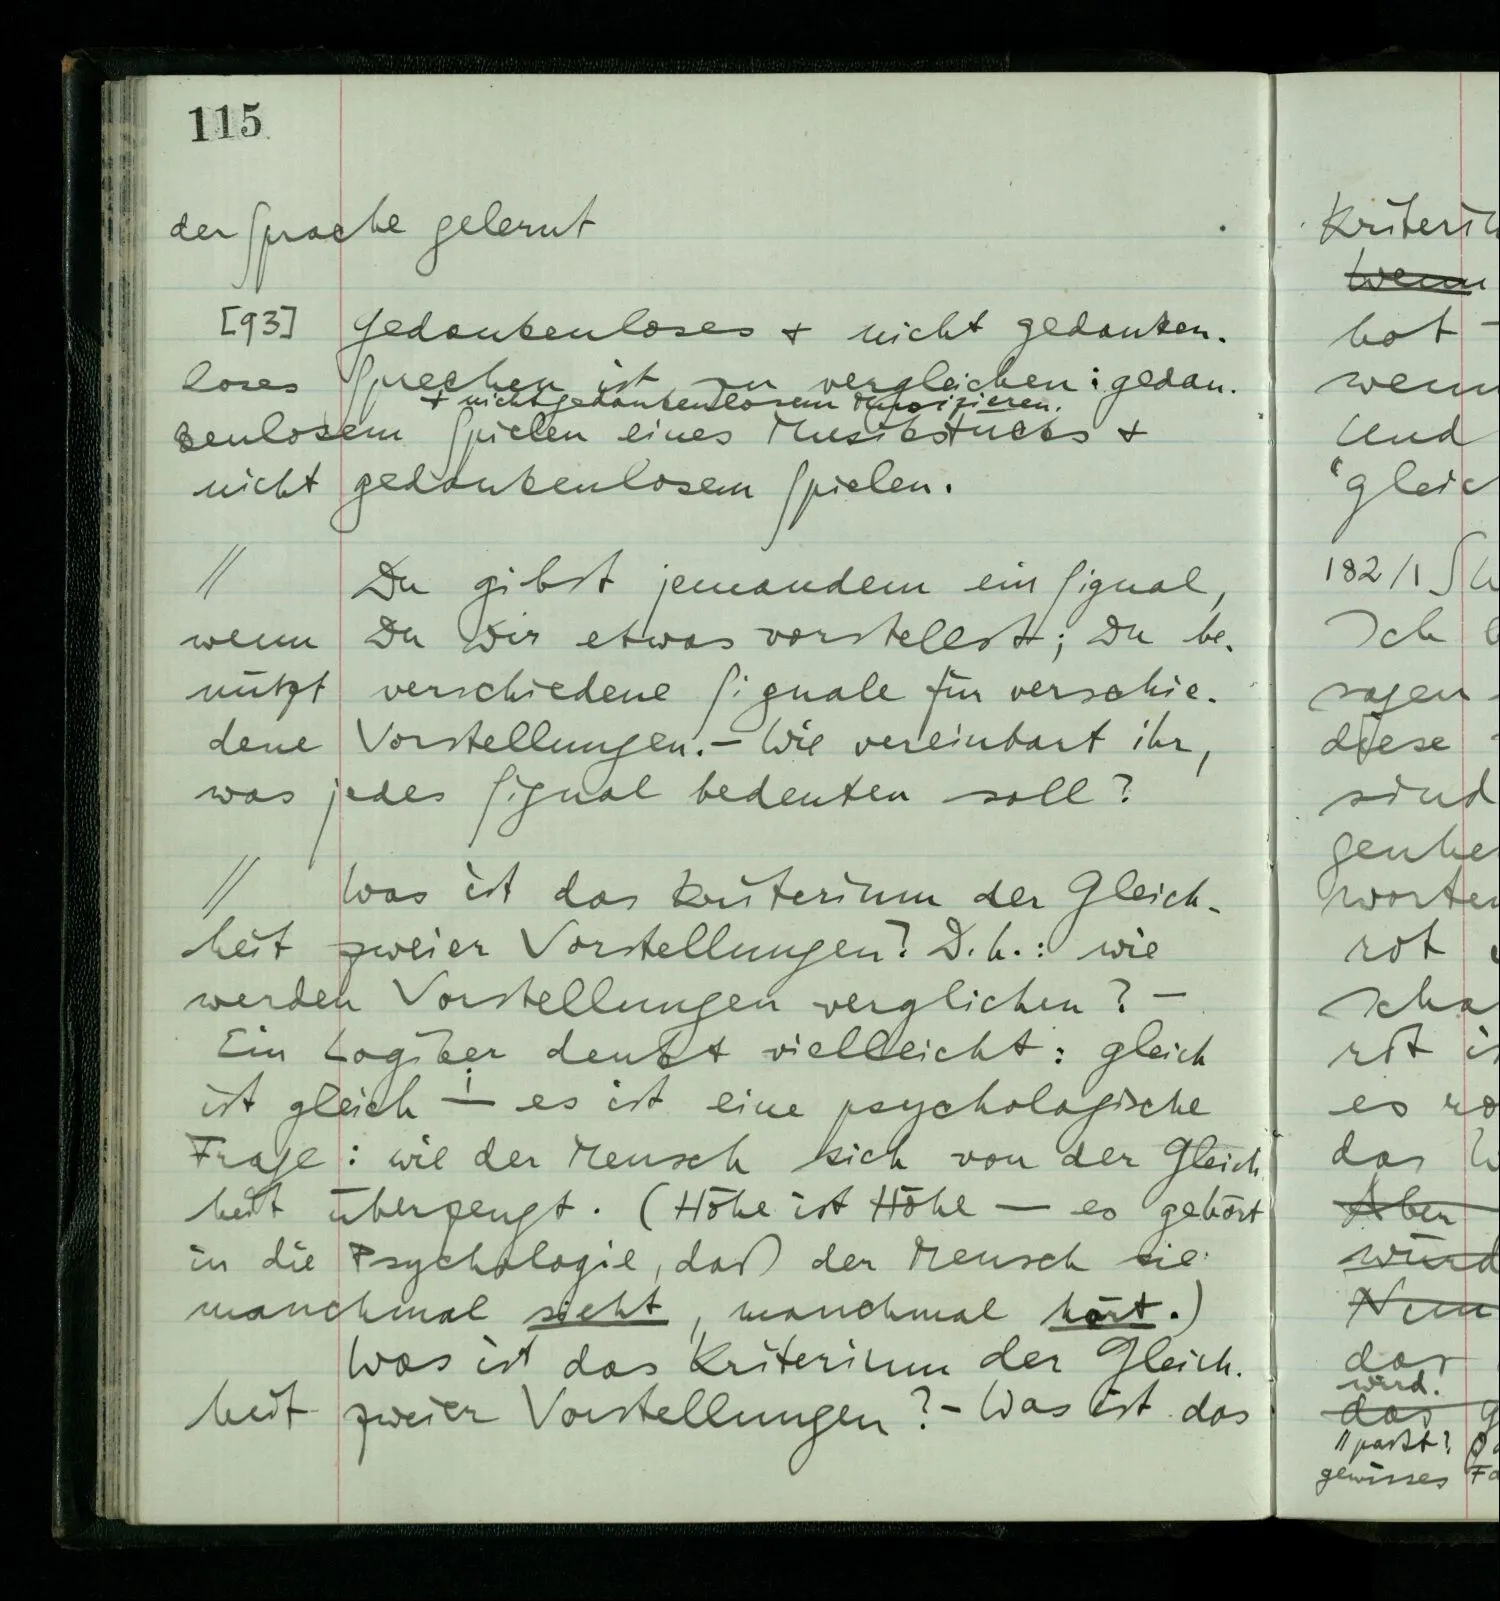 115
der Sprache gelernt
[93] Gedankenloses + nicht gedanken-
loses Sprechen ist zu vergleichen: gedan-
+ nicht gedankenlosem Musizieren.
kenlosem Spielen eines Musikstücks +
nicht gedankenlosem Spielen.
// Du gibst jemandem ein Signal,
wenn Du Dir etwas vorstellst; Du be-
nützt verschiedene Signale für verschie-
dene Vorstellungen. – Wie vereinbart ihr,
was jedes Signal bedeuten soll?
// Was ist das Kriterium der Gleich-
heit zweier Vorstellungen? D.h.: wie
werden Vorstellungen verglichen? –
Ein Logiker denkt vielleicht: gleich
ist gleich – es ist eine psychologische
Frage: wie der Mensch sich von der Gleich
heit überzeugt. (Höhe ist Höhe – es gehört
in die Psychologie, daß der Mensch sie
manchmal sieht, manchmal hört.)
Was ist das Kriterium der Gleich-
heit zweier Vorstellungen? – Was ist das
Wenn
hat –
wenn
Und
182/1
Ich
sagen
diese
sind
rot
rot
es
das
Aber
das
wird.
das
gewisses